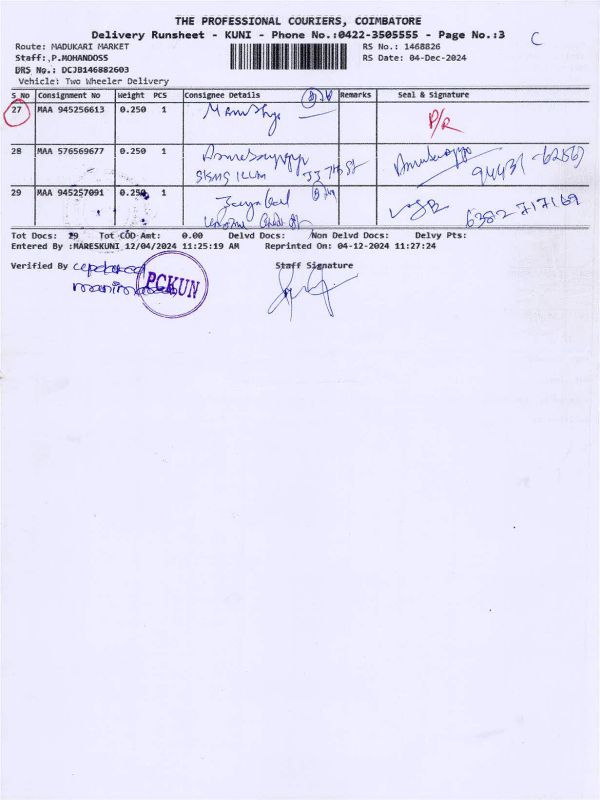 THE PROFESSIONAL COURIERS, COIMBATORE
Delivery Runsheet - KUNI - Phone No.:0422-3505555 - Page No.:3
C
Route: MADUKARI MARKET RS No.: 1468826
Staff:,P.MOHANDOSS RS Date: 04-Dec-2024
DRS No.: DCJB146882603
Vehicle: Two Wheeler Delivery
S_No Consignment No Weight PCS Consignee Details Remarks Seal & Signature
27 MAA 945256613 0.250 1 P/R
28 MAA 576569677 0.250 1
94431-62867
29 MAA 945257091 0.250 1
6382717169
Tot Docs: 29 Tot COD Amt: 0.00 Delvd Docs: Non Delvd Docs: Delvy Pts:
Entered By :MARESKUNI 12/04/2024 11:25:19 AM Reprinted On: 04-12-2024 11:27:24
Verified By Staff Signature
PCKUN